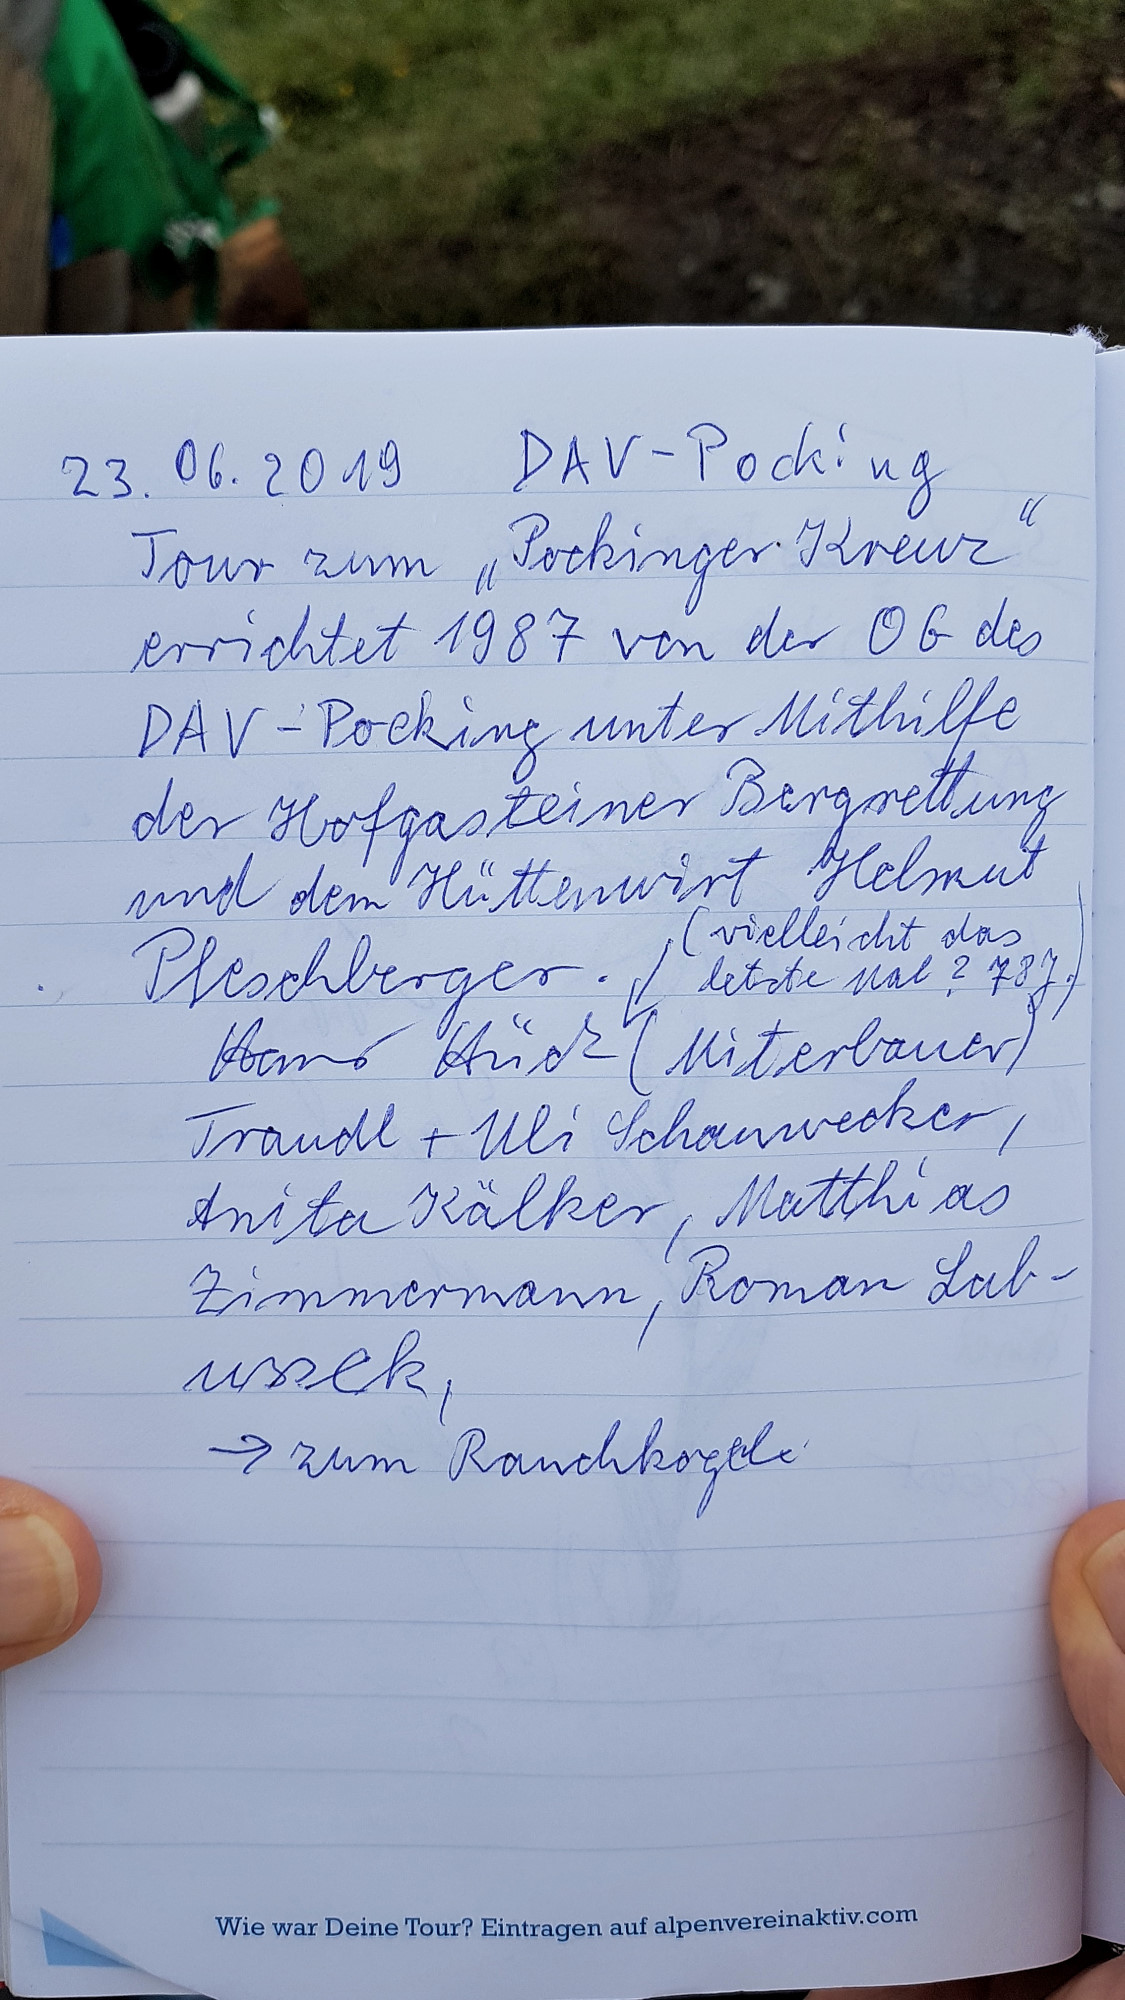 23. 06. 2019 DAV-Pocking
Tour zum „Pockinger Kreuz“
errichtet 1987 von der OG des
DAV-Pocking unter Mithilfe
der Hofgasteiner Bergrettung
und dem Hüttenwirt Helmut
Pleschberger. (vielleicht das
letzte Mal? 78J.)
Hans Hück (Miterbauer)
Traudl + Uli Schanwecker,
Anita Kälker, Matthias
Zimmermann, Roman Lab-
ussek,
→ zum Rauchkogel
Wie war Deine Tour? Eintragen auf alpenvereinaktiv.com